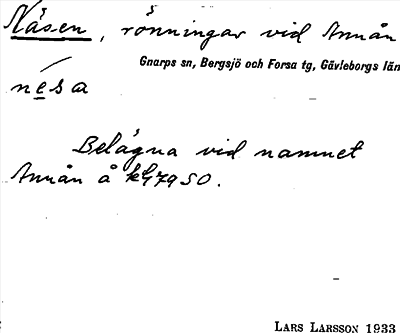 Näsen, rönningar vid Annån
Gnarps sn, Bergsjö och Forsa tg, Gävleborgs län
nésa
Belägna vid namnet
Annån å 7950.
LARS LARSSON 1933